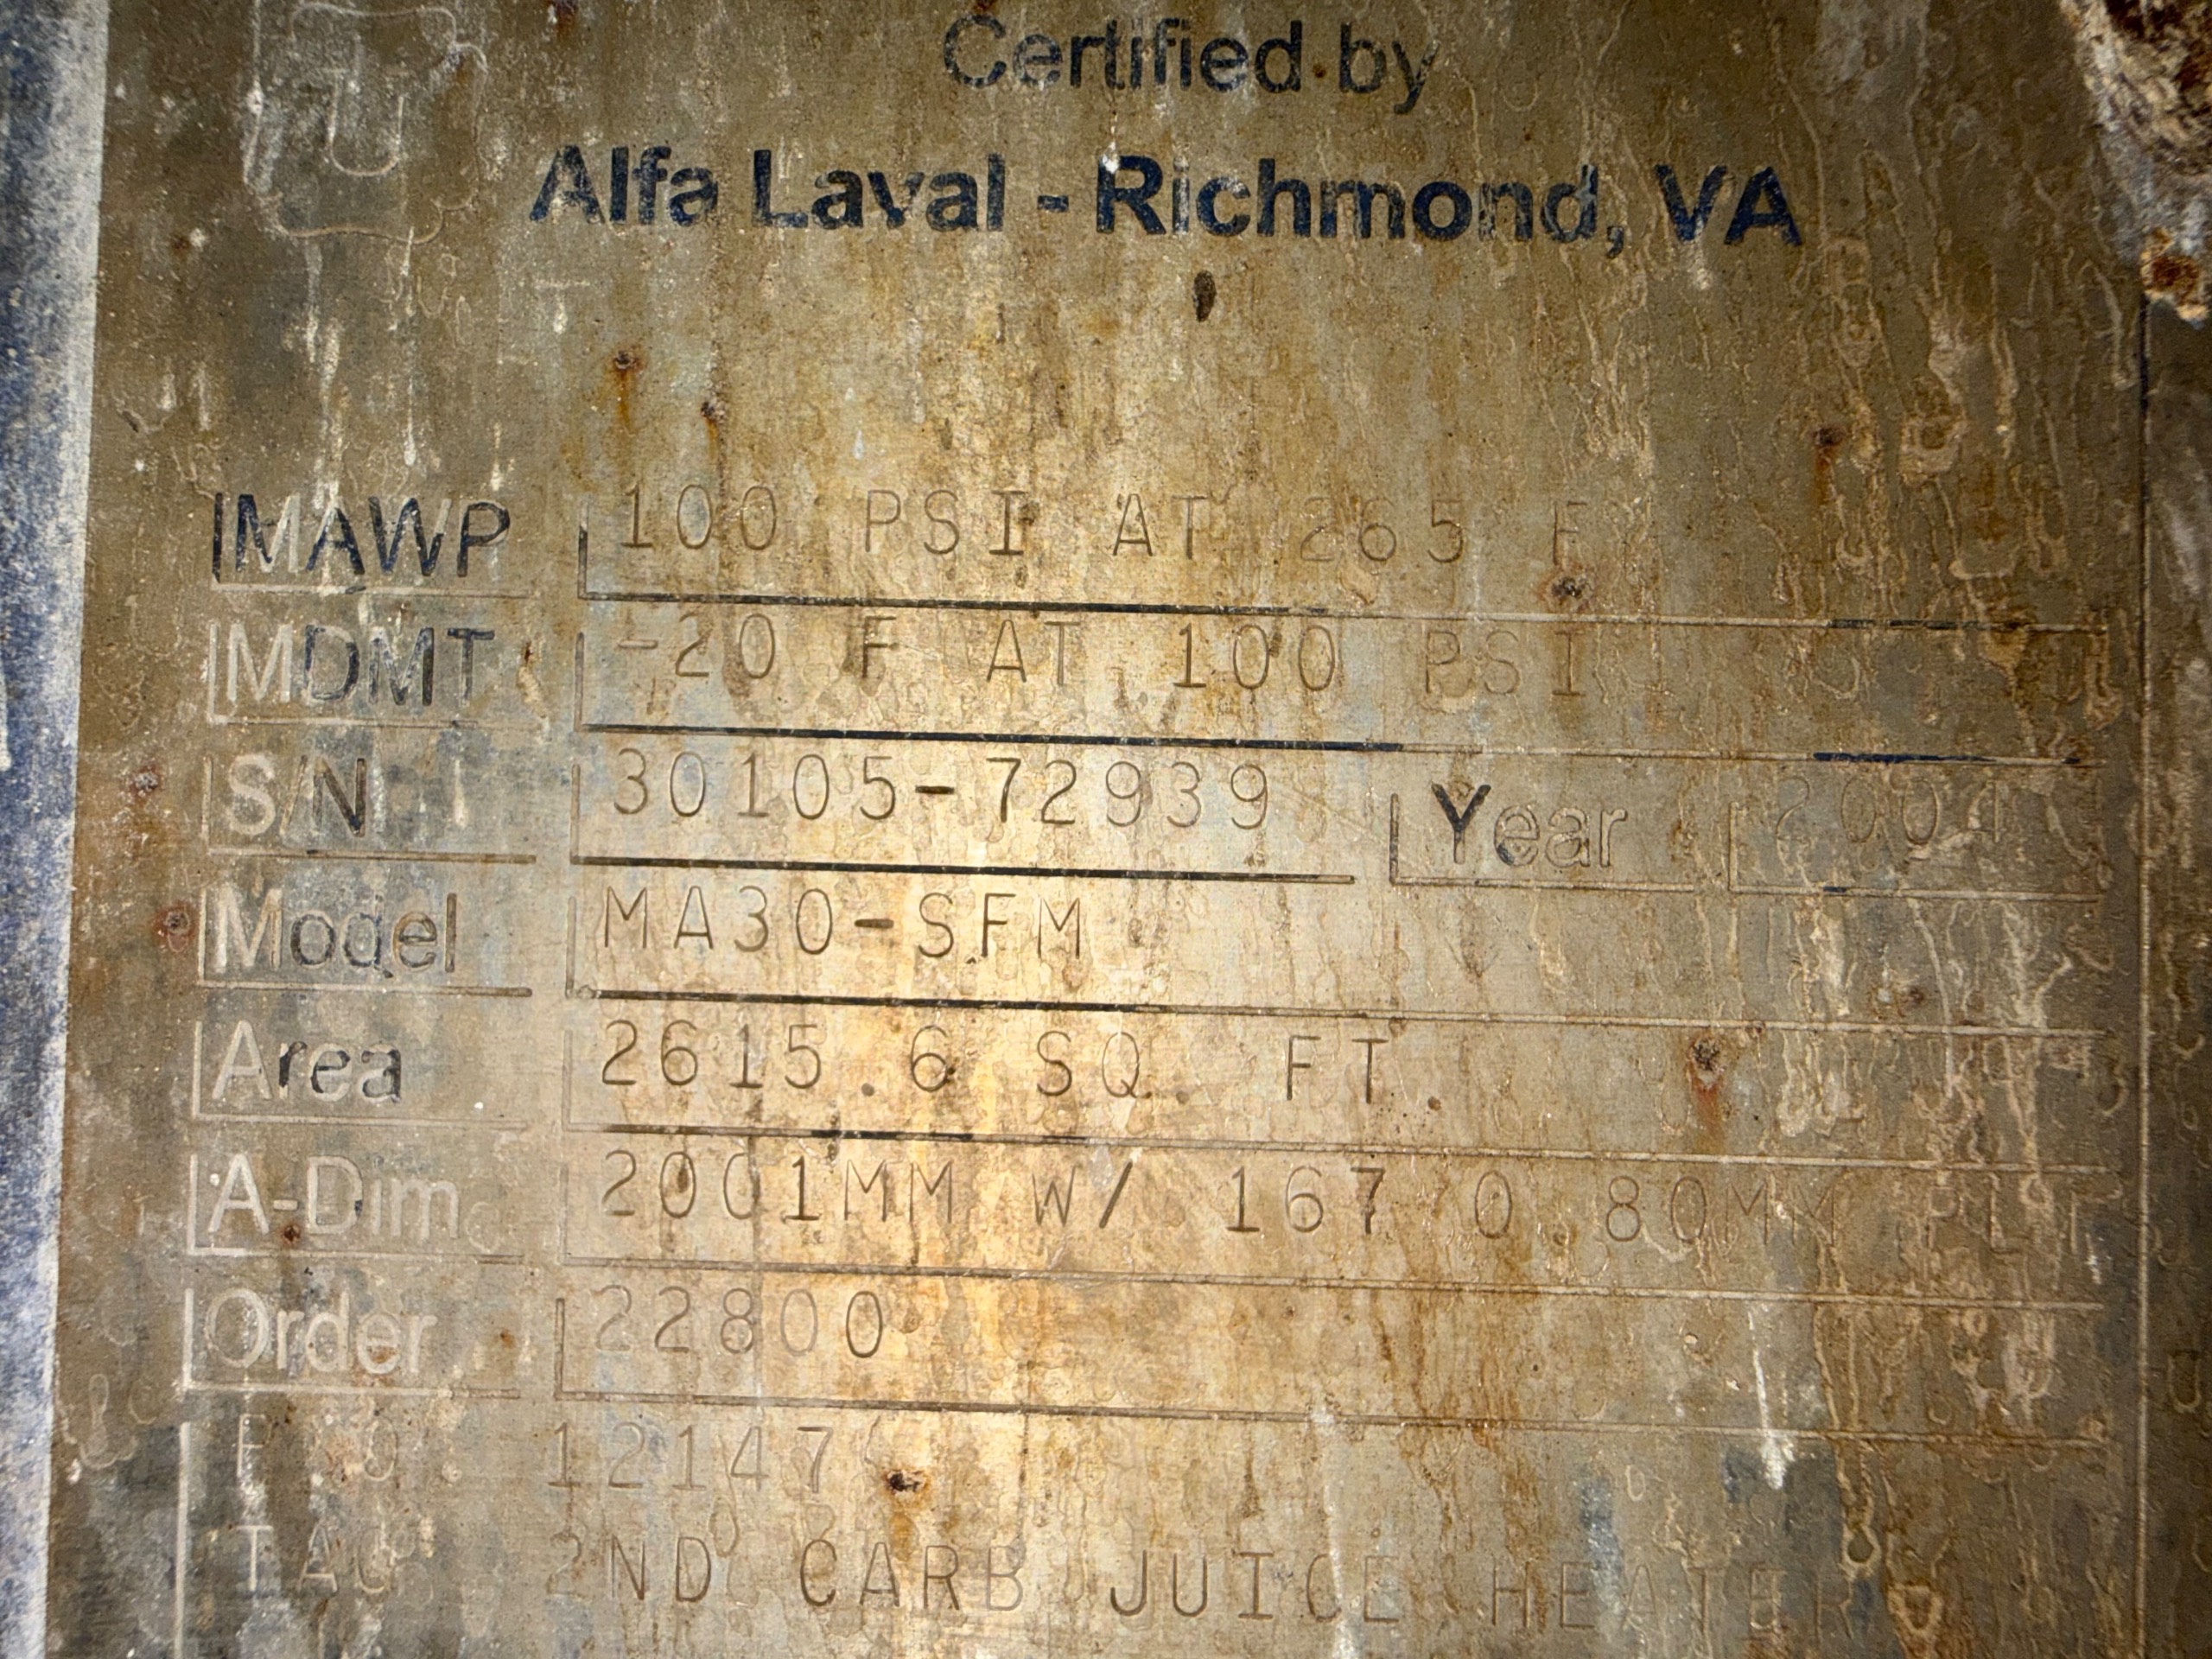 U
Certified by
Alfa Laval - Richmond, VA
MAWP 100 PSI AT 265 F
MDMT -20 F AT 100 PSI
S/N 30105-72939 Year 2004
Model MA30-SFM
Area 2615.6 SQ. FT.
A-Dim 2001MM W/ 167 0.80MM PLT
Order 22800
12147
TAG 2ND CARB JUICE HEATER